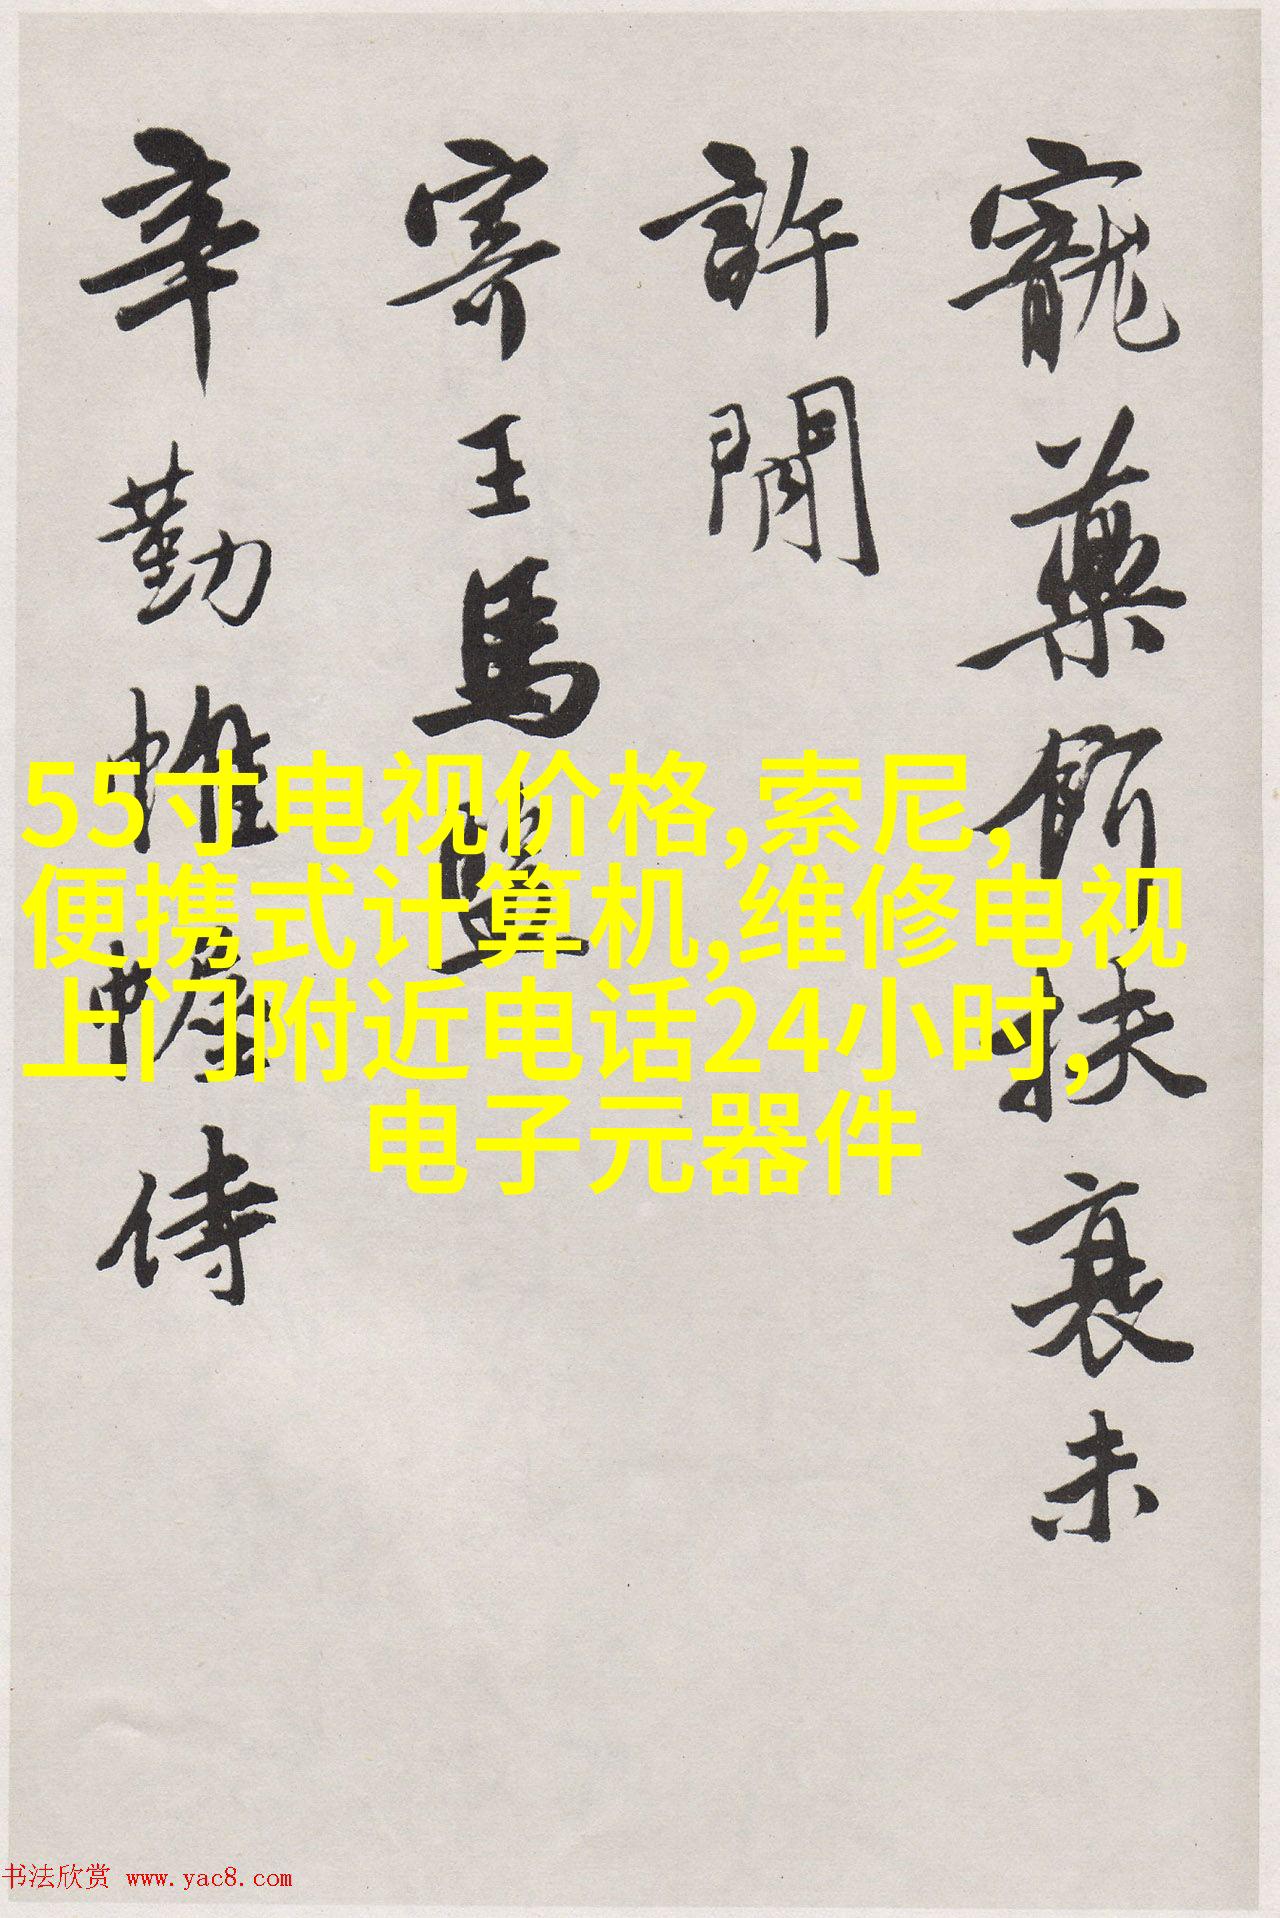 寵藥餌扶衰未
許閒
寄王馬監
辛勤帷幄侍
55寸电视价格,索尼,
便携式计算机,维修电视
上门附近电话24小时,
电子元器件
书法欣赏 www.yac8.com